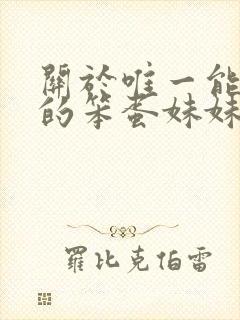 關於唯一能
的笨蛋妹妹
羅比克伯雷